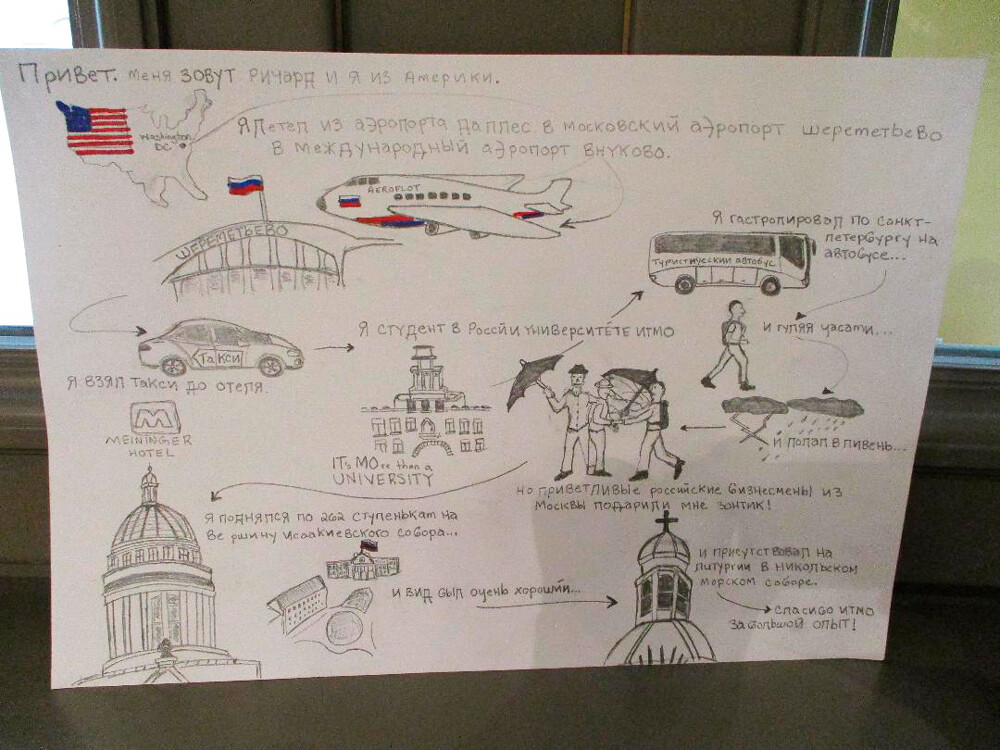 Привет. меня зовут Ричард и я из Америки.
Washington
DC
Я летел из аэропорта даллес в московский аэропорт шереметьево
в международный аэропорт внуково.
AEROFLOT
ШЕРЕМЕТЬЕВО
Я гастролировал по Санкт-
петербургу на
автобусе...
туристический автобус
такси
Я взял такси до отеля.
M
MEININGER
HOTEL
Я студент в России университете итмо
ITs MOre than a
UNIVERSITY
и гуляя часами...
и попал в ливень...
но приветливые российские бизнесмены из
Москвы подарили мне зонтик!
Я поднялся по 262 ступенькам на
вершину Исаакиевского собора...
и вид был очень хороший...
и присутствовал на
литургии в Никольском
морском соборе.
Спасибо итмо
за большой опыт!